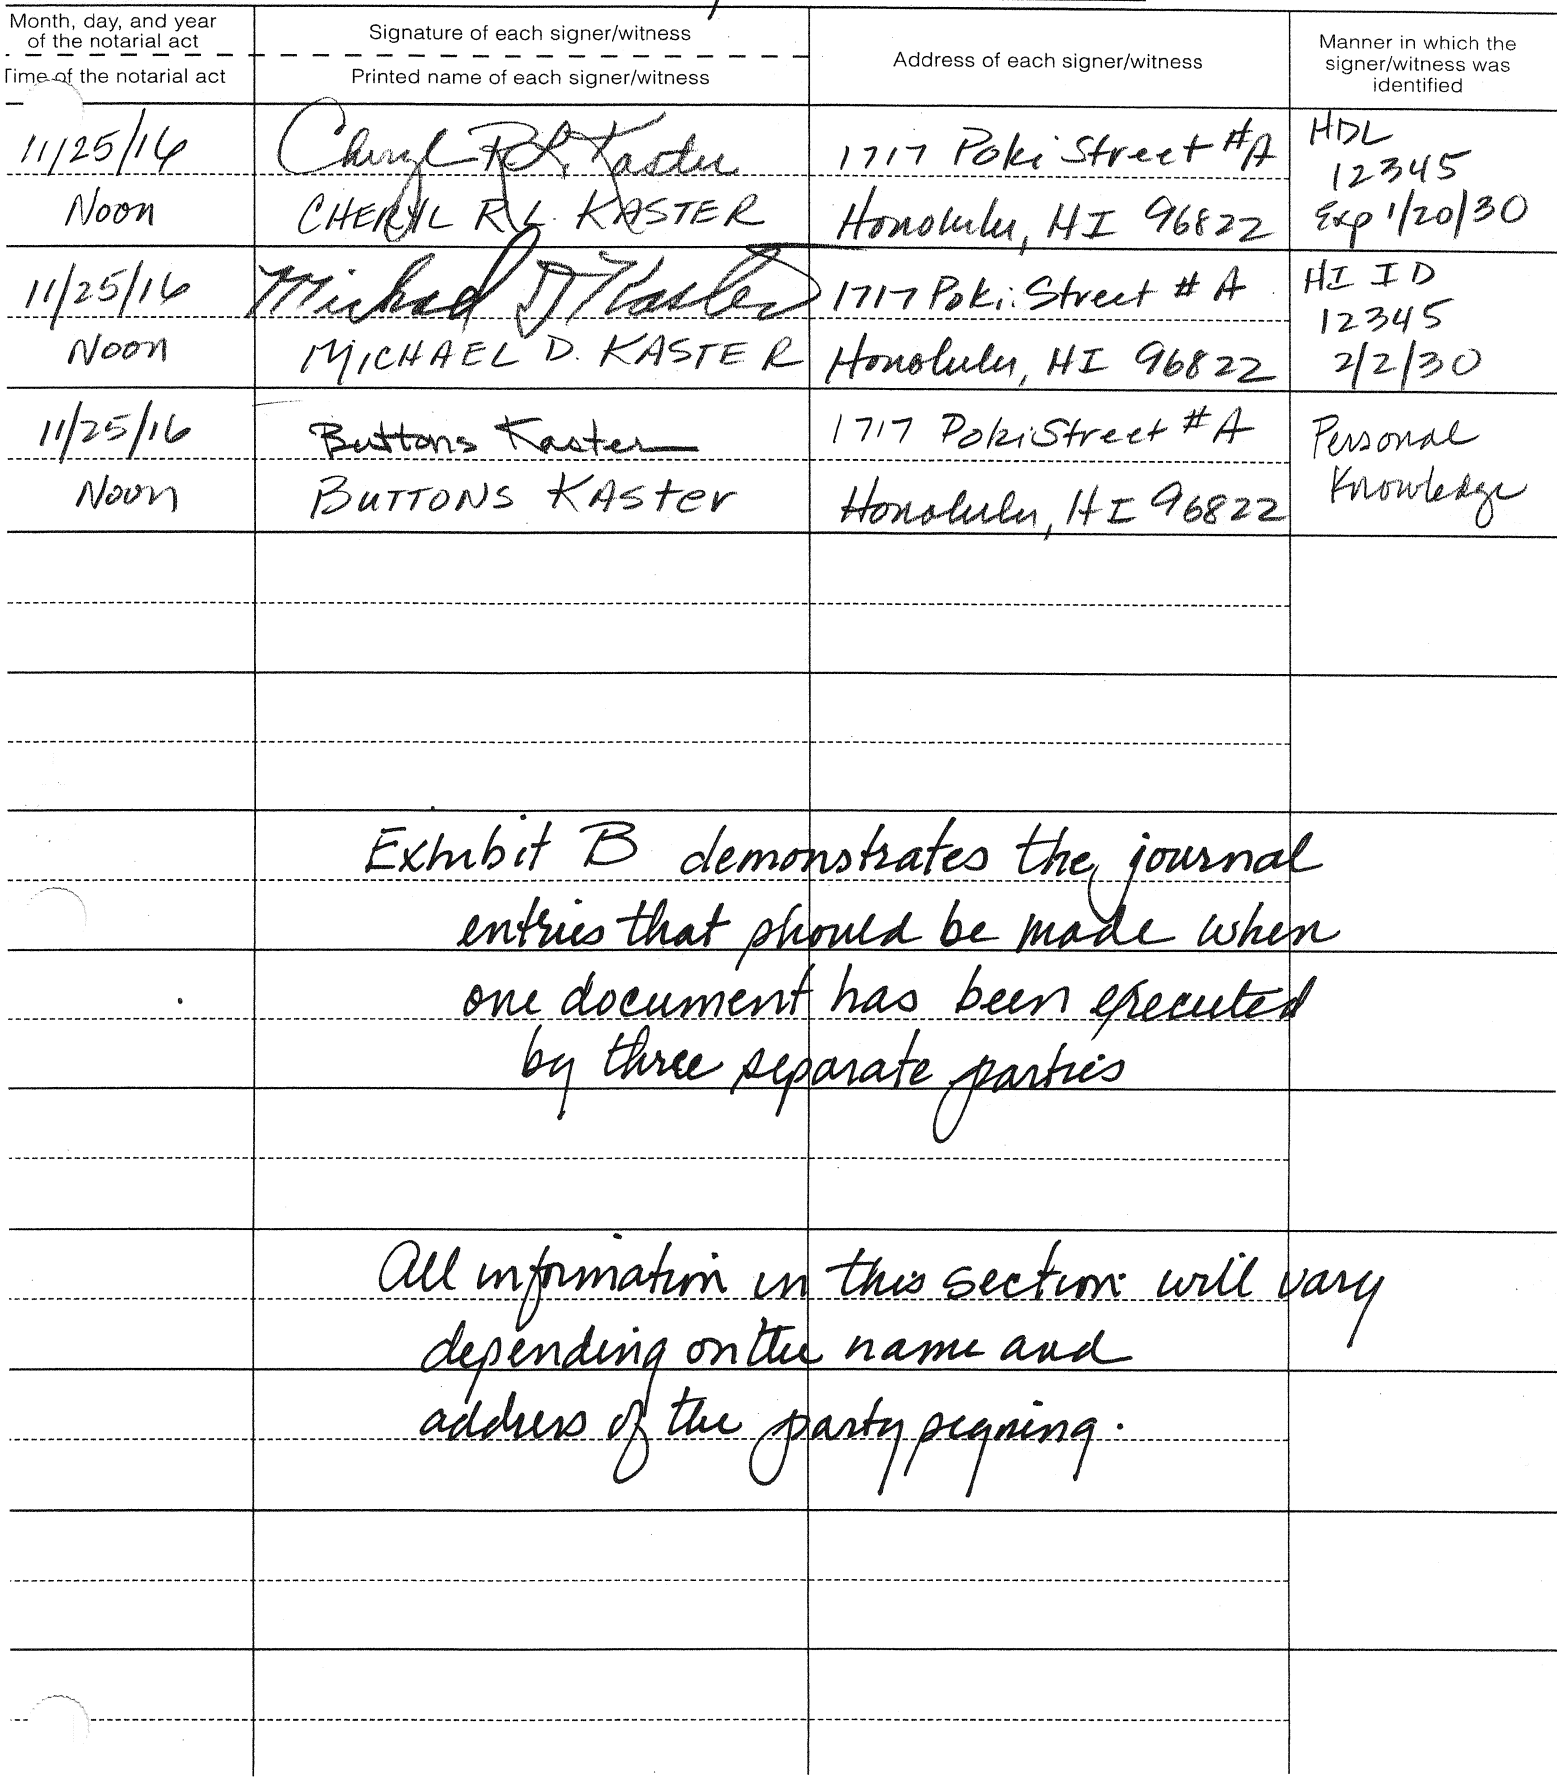 Month, day, and year of the notarial act
Time of the notarial act
Signature of each signer/witness
Printed name of each signer/witness
Address of each signer/witness
Manner in which the signer/witness was identified
11/25/16
Noon
Cheryl R. L. Kaster
CHERYL R. L. KASTER
1717 Poki Street #A
Honolulu, HI 96822
HDL
12345
Exp 1/20/30
11/25/16
Noon
Michael D Kaster
MICHAEL D. KASTER
1717 Poki Street # A
Honolulu, HI 96822
HI ID
12345
2/2/30
11/25/16
Noon
Buttons Kaster
BUTTONS KASTER
1717 Poki Street #A
Honolulu, HI 96822
Personal
Knowledge
Exhibit B demonstrates the journal
entries that should be made when
one document has been executed
by three separate parties
All information in this section will vary
depending on the name and
address of the party signing.